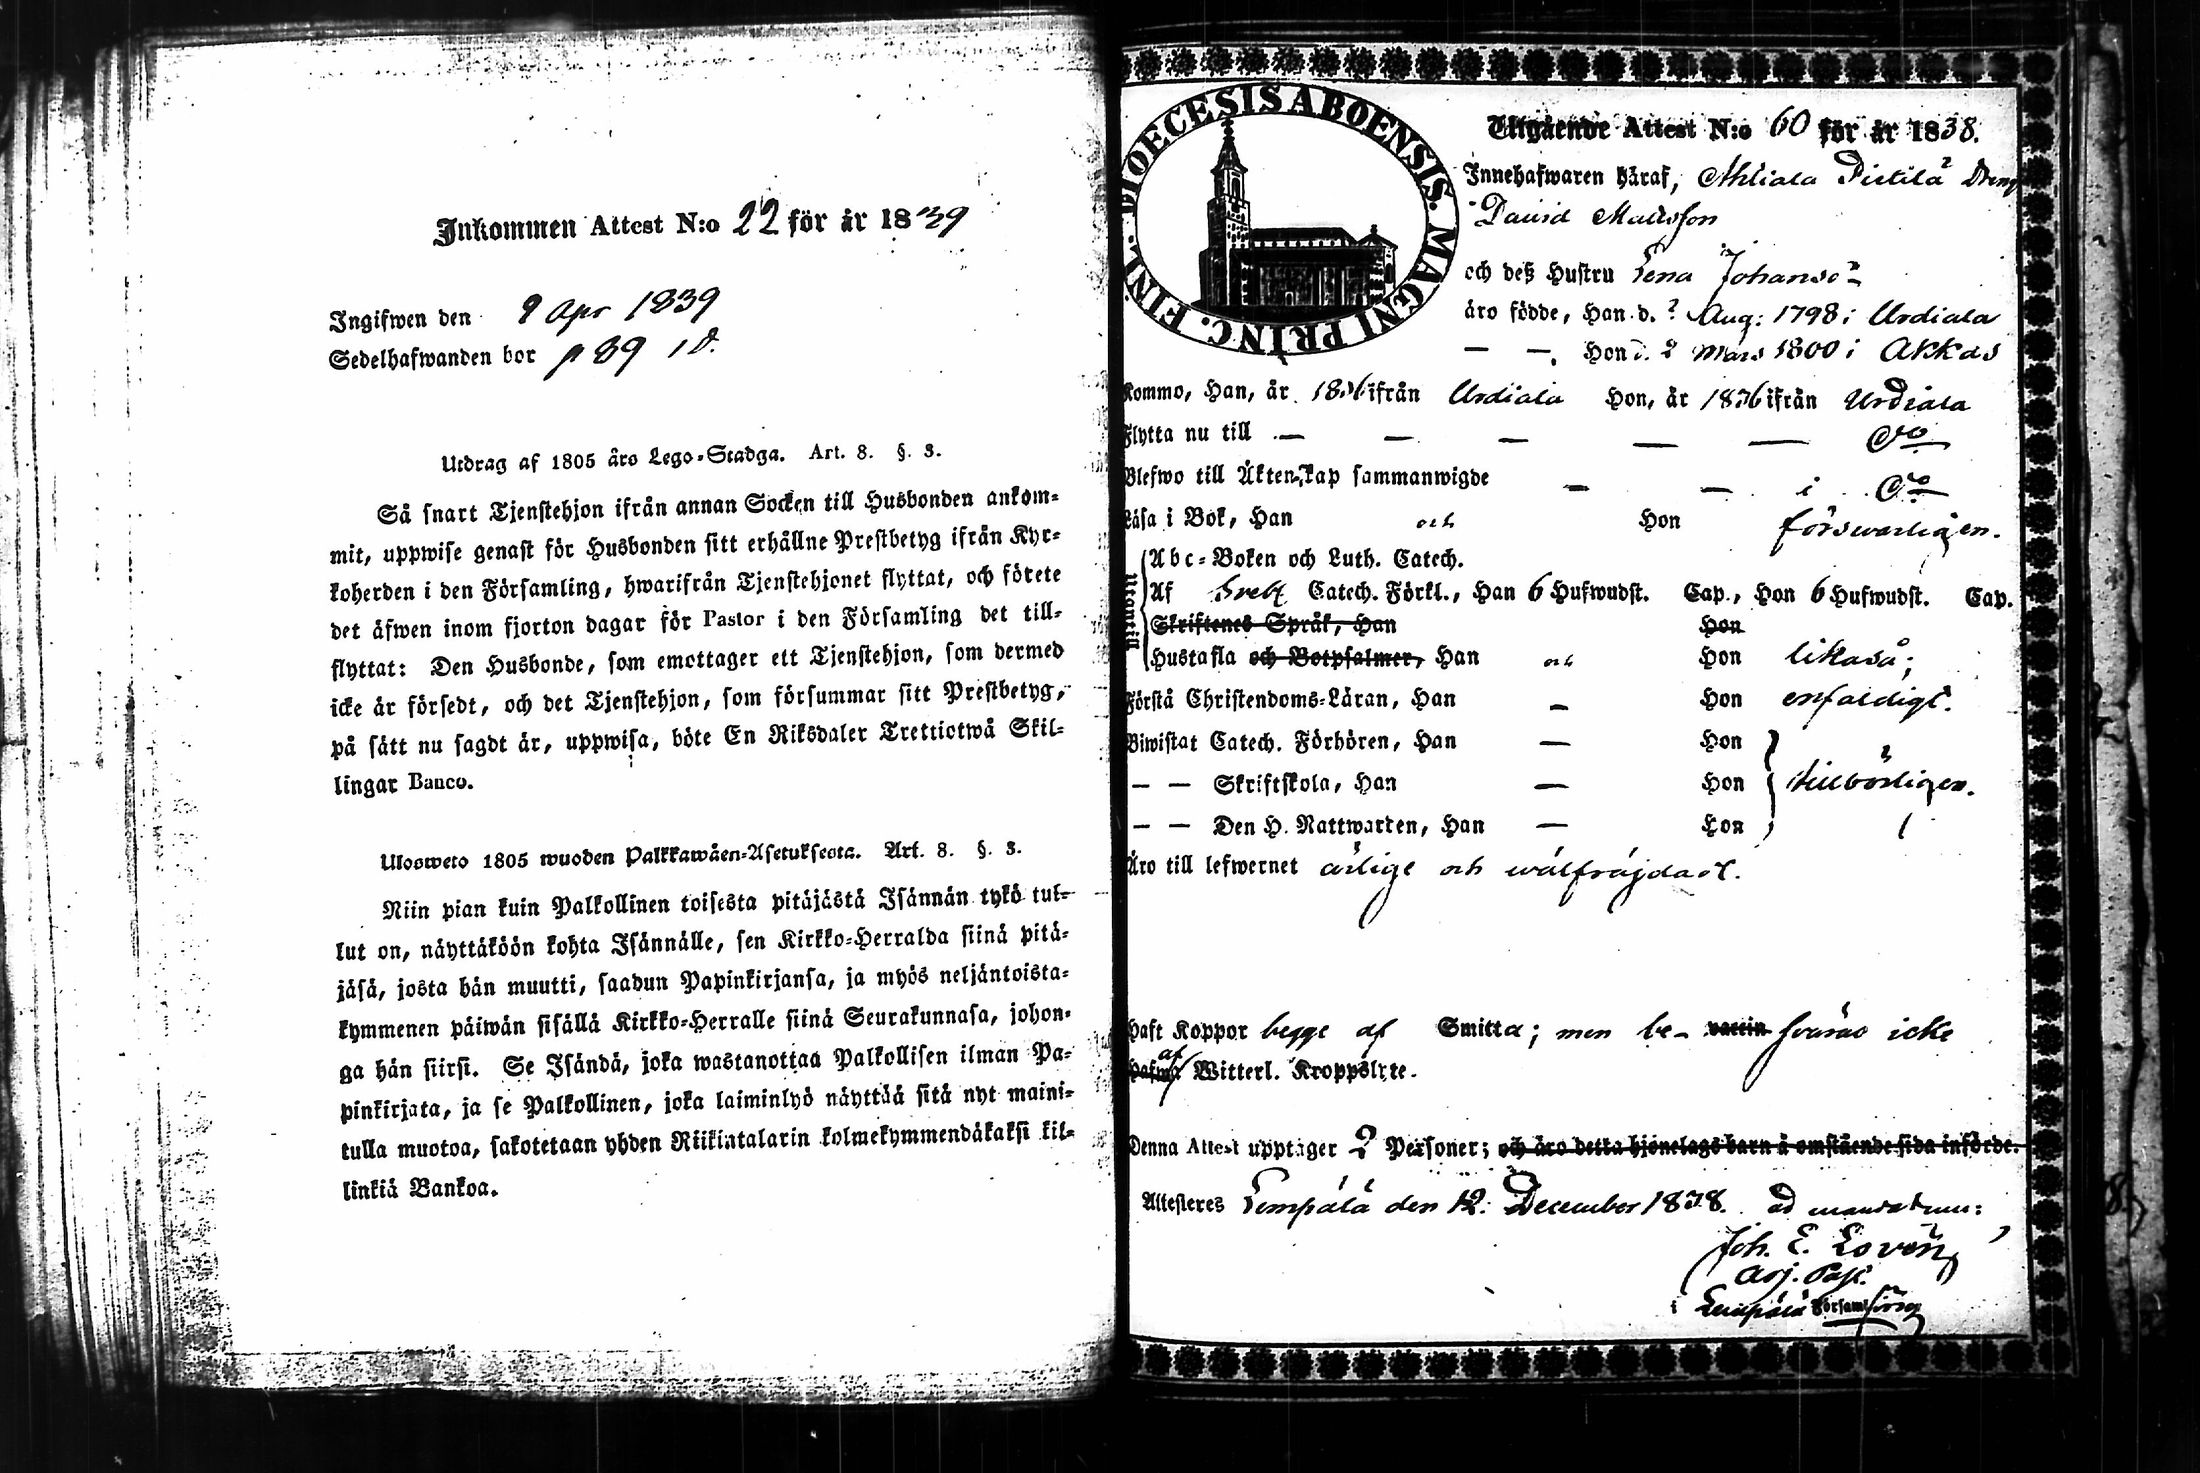 Inkommen Attest N:o 22 för år 1839
Ingifwen den 9 Apr 1839
Sedelhafwanden bor p 89
Utdrag af 1805 års Lego-Stadga. Art. 8. §. 3.
Så snart Tjenstehjon ifrån annan Socken till Husbonden ankom-
mit, uppwise genast för Husbonden sitt erhållne Prestbetyg ifrån Kyr-
koherden i den Församling, hwarifrån Tjenstehjonet flyttat, och förete
det äfwen inom fjorton dagar för Pastor i den Församling det till-
flyttat: Den Husbonde, som emottager ett Tjenstehjon, som dermed
icke är försedt, och det Tjenstehjon, som försummar sitt Prestbetyg,
på sätt nu sagdt är, uppwisa, böte En Riksdaler Trettiotwå Skil-
lingar Banco.
Ulosweto 1805 wuoden Palkkawäen-Asetuksesta. Art. 8. §. 3.
Niin pian kuin Palkollinen toisesta pitäjästä Isännän tykö tul-
lut on, näyttäköön kohta Isännälle, sen Kirkko-Herralda siinä pitä-
jäsä, josta hän muutti, saadun Papinkirjansa, ja myös neljäntoista-
kymmenen päiwän sisällä Kirkko-Herralle siinä Seurakunnasa, johon-
ga hän siirsi. Se Isändä, joka wastanottaa Palkollisen ilman Pa-
pinkirjata, ja se Palkollinen, joka laiminlyö näyttää sitä nyt maini-
tulla muotoa, sakotetaan yhden Riikintalarin kolmekymmendäkaksi kil-
linkiä Bankoa.
DIOECESIS ABOENSIS. MAGNI PRINC. FINL.
Utgående Attest N:o 60 för år 1838.
Innehafwaren häraf, Ahliala Pietilä Dreng
David Mattsson
och deß Hustru Lena Johansdr
äro födde, Han d. ? Aug: 1798 i Urdiala
— — Hon d. 2 Mars 1800 i Akkas
Kommo, Han, år 1836 ifrån Urdiala Hon, år 1836 ifrån Urdiala
Flytta nu till — — — — — do
Blefwo till Äktenskap sammanwigde — — i do
Läsa i Bok, Han och Hon förswarligen.
Utantill
Abc-Boken och Luth. Catech.
Af Sveb. Catech. Förkl., Han 6 Hufwudst. Cap., Hon 6 Hufwudst. Cap.
Skriftenes Språk, Han Hon
Hustafla och Botpsalmer, Han och Hon likaså;
Förstå Christendoms-Läran, Han — Hon enfaldigt.
Biwistat Catech. Förhören, Han — Hon
— — Skriftskola, Han — Hon tillbörligen.
— — Den H. Nattwarden, Han — Hon
Äro till lefwernet ärligt och wälfrägdadt.
Haft Koppor begge af Smitta; men be- vaccin swäras icke
Hafwa af Witterl. Kroppslyte.
Denna Attest upptager 2 Personer; och äro detta hjonelags barn å omstående sida införde.
Attesteres Lempälä den 12. December 1838. ad mandatum:
Joh. E. Lovén
Adj. Past.
i Lempälä Församling